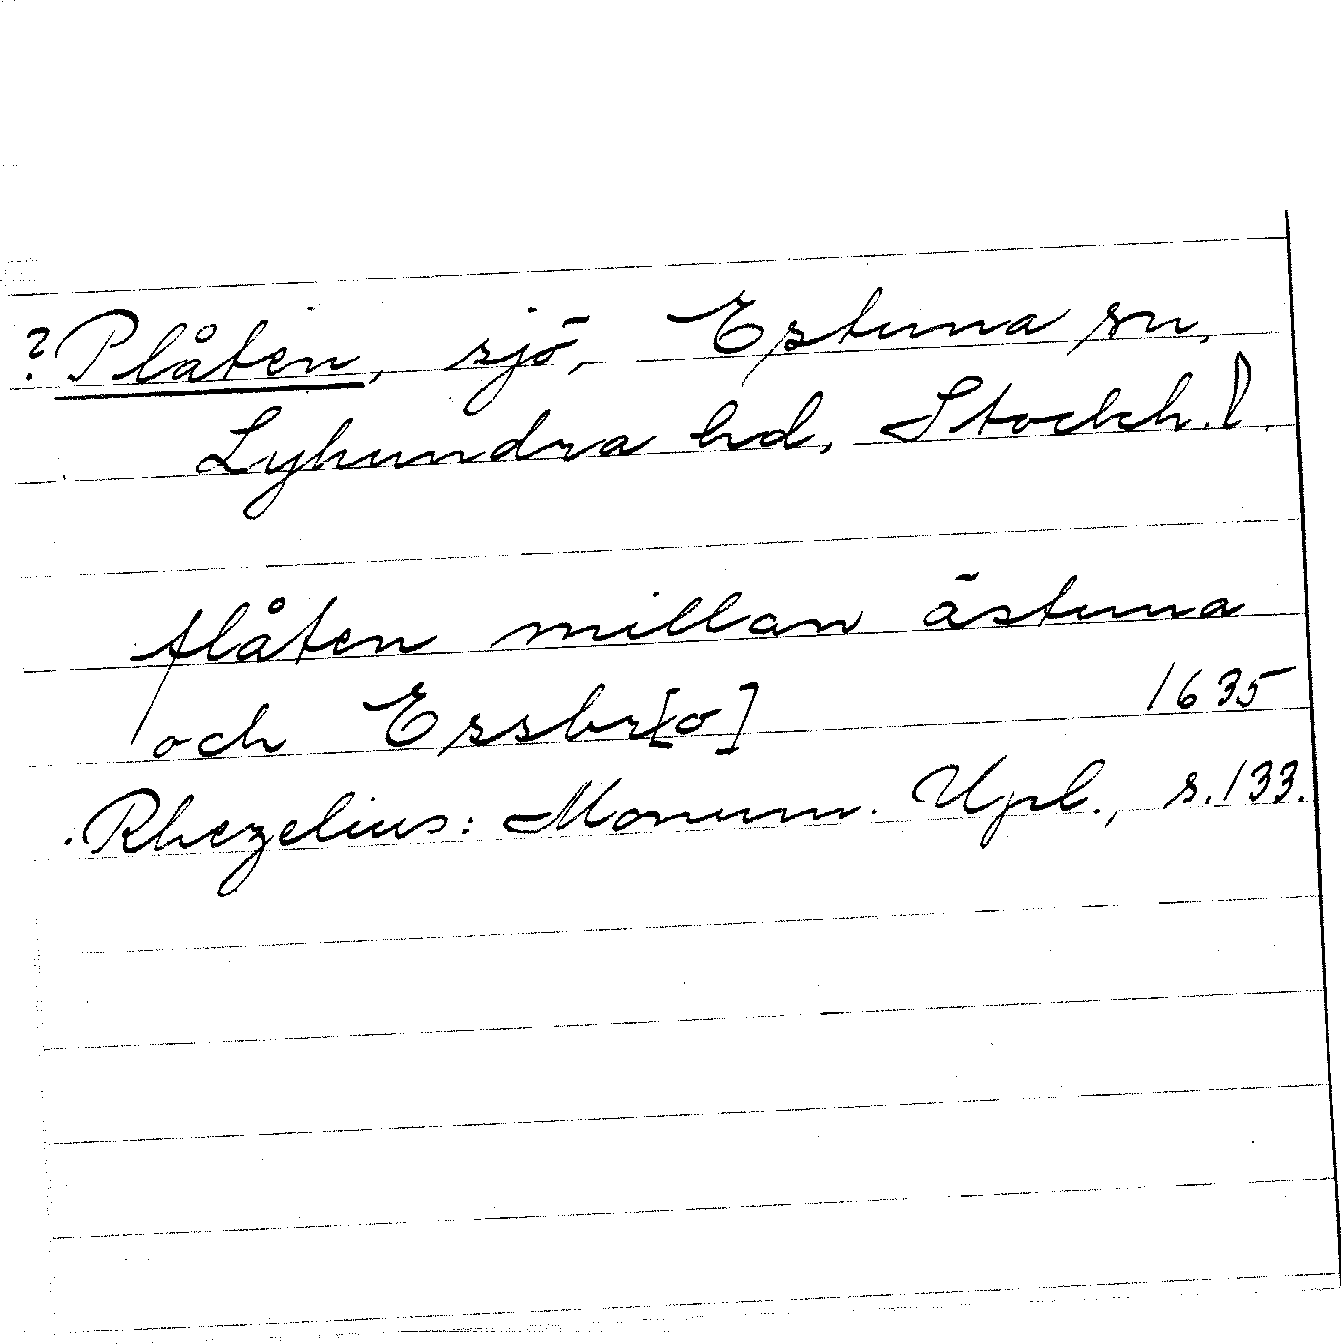 ? Plåten, sjö, Estuna sn,
Lyhundra hd, Stockh. l.
flåten millan ästuna
och Essbr[o] 1635
Rhezelius: Monum. Upl., s. 133.